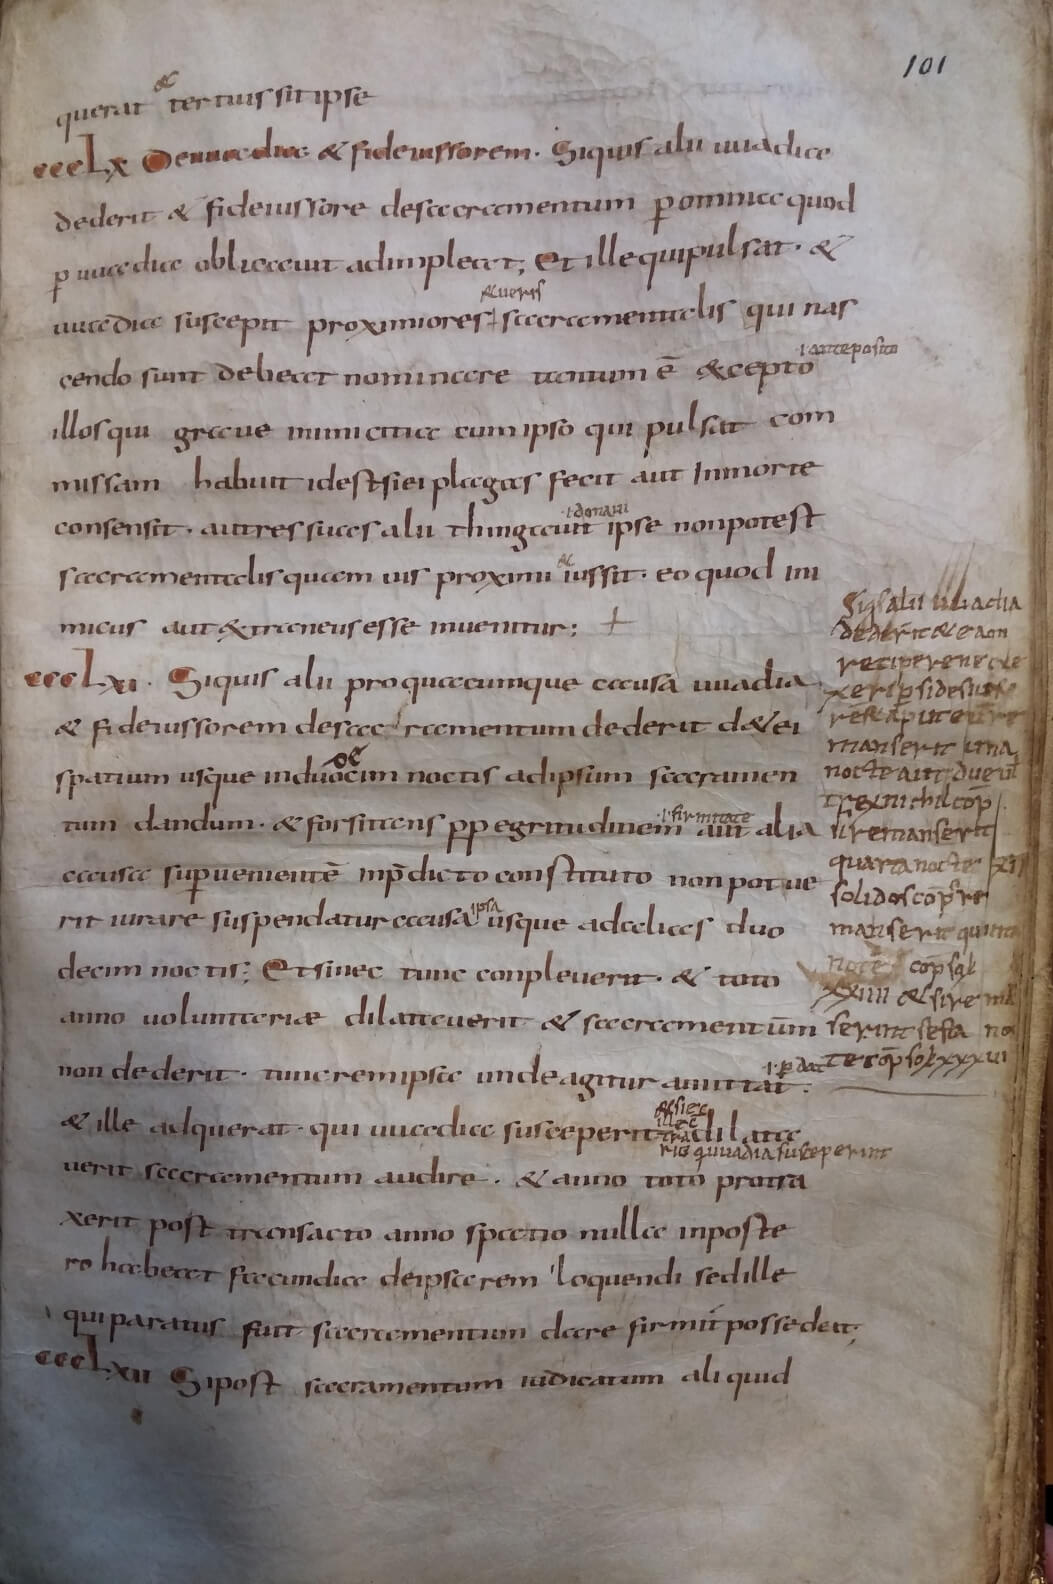 101
&
querat tertius sit ipse
cccLx De uuadia & fideiussorem. Siquis alii uuadia
dederit & fideiussore desacramentum p omnia quod
p uuadia obligauit adimpleat; Et ille qui pulsat. &
& ueris
uuadia suscepit proximiores sacramentalis qui nas
.i. anteposito
cendo sunt debeat nominare tantum ē excepto
illos qui graue inimicitia cum ipso qui pulsat com
missam habuit id est si ei plagas fecit aut In morte
.i. donauit
consensit. aut res suas alii thingauit ipse non potest
&
sacramentalis quam uis proximi iussit. eo quod ini
micus aut extraneus esse inuenitur;
cccLxi. Siquis alii pro quacumque causa uuadia
& fideiussorem desacc ramentum dederit d& ei
oe
spatium usque in duocim noctis ad ipsum sacramen
.i. firmitate
tum dandum. & forsitans pp egritudinem aut alia
causa supueniente in pdicto constituto non potue
ipsa
rit iurare suspendatur causa usque ad alias duo
decim noctis; Et si nec tunc conpleuerit. & toto
anno uoluntariae dilatauerit & sacramentum
.i. pdat
non dederit. tunc rem ipsa unde agitur amittat.
& ille adquerat. qui uuadia susceperit dilata
ris q uuadia susceperint
uerit sacramentum audire. & anno toto protra
xerit post transacto anno spatio nulla in poste
ro habeat facundia de ipsa rem loquendi sed ille
qui paratus fuit sacramentum dare firmit possedeat;
cccLxii Si post sacramentum iudicatum aliquid
Siqs alii uuadia
dederit & eam
recipere negle
xerit
manserit una
nocte aut due ul
tres nichil cop
si remanserit
quarta nocte XII
solidos cop si re
manserit quinta
note cop sol
XXIIII & si rema
serint sesta no
te cop sol XXXVI